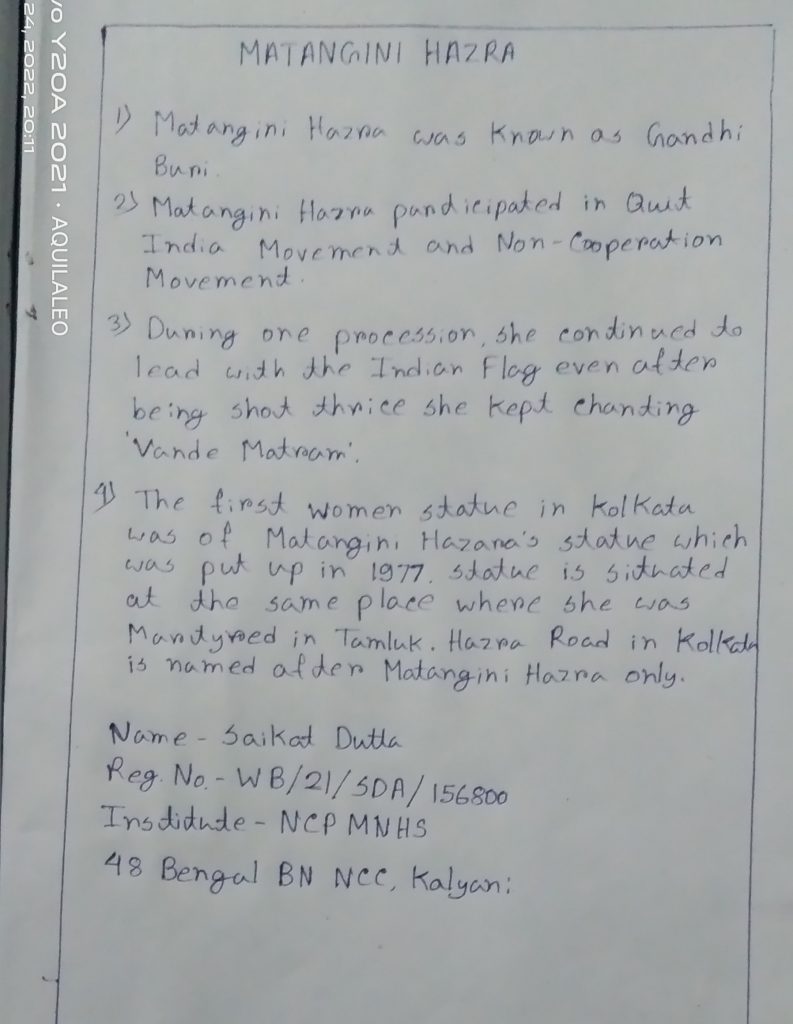 MATANGINI HAZRA
1) Matangini Hazra was known as Gandhi
Buri.
2) Matangini Hazra participated in Quit
India Movement and Non-Cooperation
Movement.
3) During one procession, she continued to
lead with the Indian Flag even after
being shot thrice she kept chanting
'Vande Matram'.
4) The first women statue in Kolkata
was of Matangini Hazara's statue which
was put up in 1977. statue is situated
at the same place where she was
Martyred in Tamluk. Hazra Road in Kolkata
is named after Matangini Hazra only.
Name - Saikat Dutta
Reg. No. - WB/21/SDA/156800
Institute - NCPMNHS
48 Bengal BN NCC, Kalyani
vo Y20A 2021 · AQUILALEO
24, 2022, 20:11